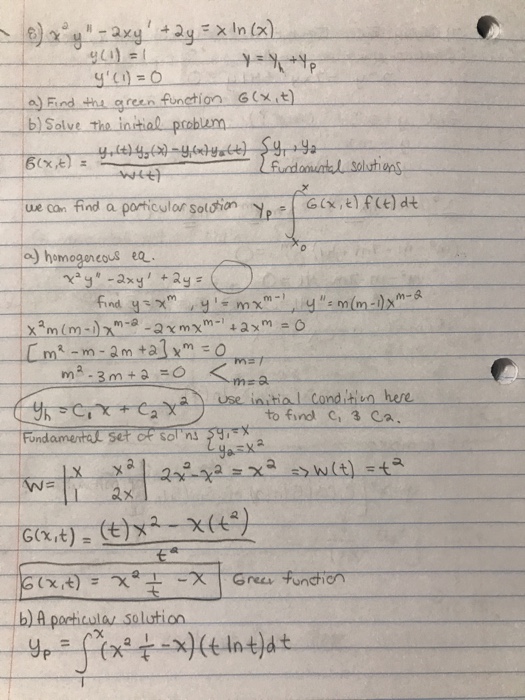 8) x² y'' - 2xy' + 2y = x ln(x)
y(1) = 1
y = yₕ + yₚ
y'(1) = 0
a) Find the green function G(x,t)
b) Solve the initial problem
G(x,t) = (y₁(t) y₂(x) - y₁(x) y₂(t)) / W(t) { y₁, y₂
fundamental solutions
we can find a particular solution yₚ = ∫ₓ₀ˣ G(x,t) f(t) dt
a) homogereous eq.
x² y'' - 2xy' + 2y =
find y = xᵐ, y' = mxᵐ⁻¹, y'' = m(m-1)xᵐ⁻²
x² m(m-1)xᵐ⁻² - 2xmxᵐ⁻¹ + 2xᵐ = 0
[m² - m - 2m + 2] xᵐ = 0
m² - 3m + 2 = 0 < m=1
m=2
yₕ = C₁x + C₂x² use initial condition here
to find C₁ & C₂.
Fundamental set of sol'ns { y₁ = x
y₂ = x²
W = | x x² | 2x² - x² = x² => W(t) = t²
| 1 2x |
G(x,t) = ((t)x² - x(t²)) / t²
G(x,t) = x² 1/t - x Green function
b) A particular solution
yₚ = ∫₁ˣ (x² 1/t - x)(t ln t) dt